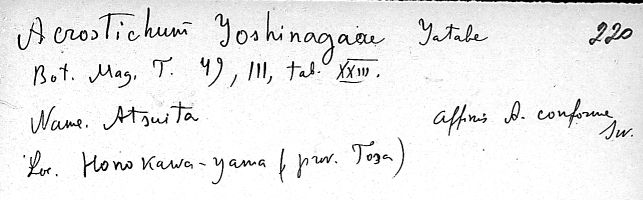 Acrostichum Yoshinagaae Yatabe 220
Bot. Mag. T. 49, III, tab. XXIII.
Name. Atsuita affinis A. conforme Sw.
Loc. Honokawa-yama (prov. Tosa)